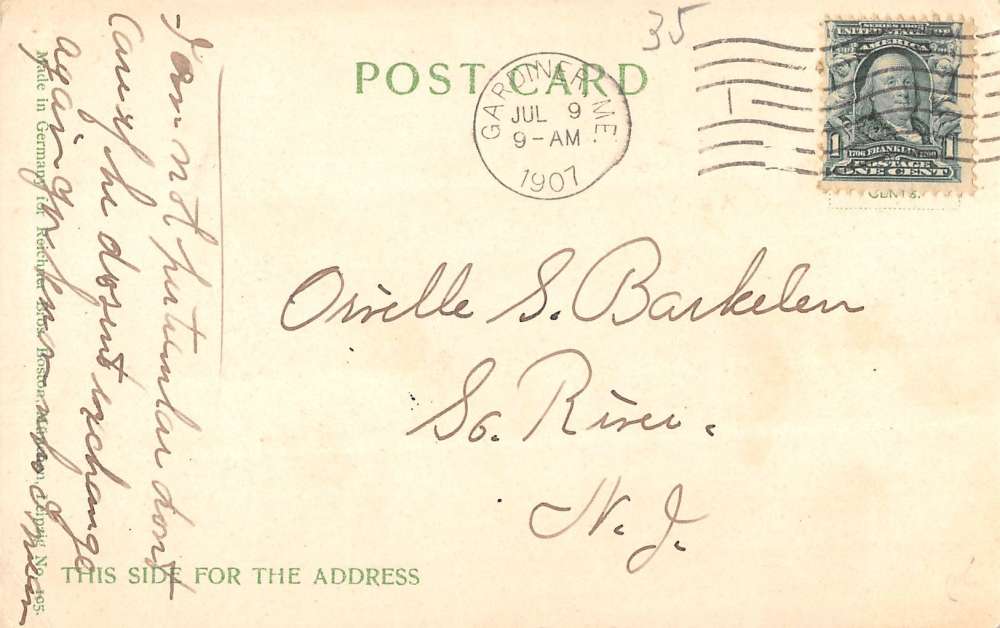 35
POST CARD
GARDINER, ME.
JUL 9
9-AM
1907
1
SERIES 1902
UNITED STATES OF
AMERICA
1706 FRANKLIN 1790
POSTAGE
ONE CENT
1 1
CENTS.
Orielle S. Barkelew
So. River.
N. J.
I am not particular dont
Care if he dosent exchange
again
Made in Germany for Reichner Bros. Boston, Munich, Leipzig No. 105.
THIS SIDE FOR THE ADDRESS